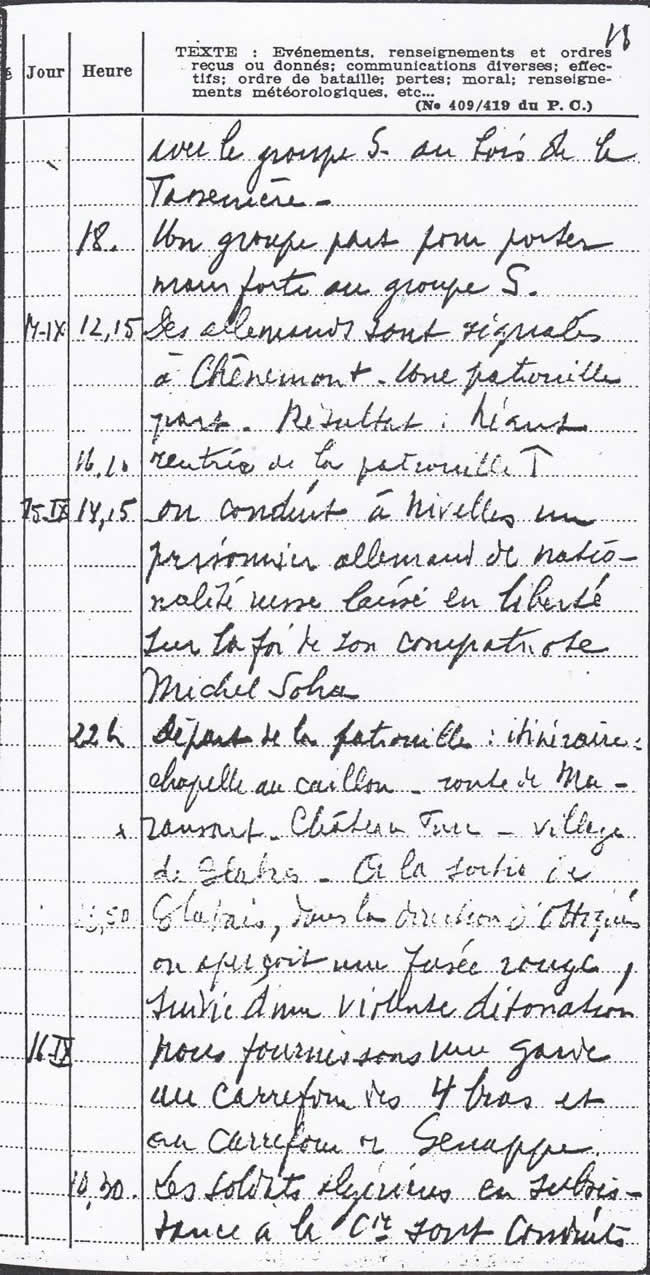 18
Jour Heure TEXTE : Evénements, renseignements et ordres
reçus ou donnés; communications diverses; effec-
tifs; ordre de bataille; pertes; moral; renseigne-
ments météorologiques, etc...
(No 409/419 du P. C.)
avec le groupe S. au bois de la
Tassenière -
18. Un groupe part pour porter
main forte au groupe S.
14-IX 12,15 Des allemands sont signalés
à Chênemont - Une patrouille
part. Résultat : Néant
16,10 rentrée de la patrouille
15-IX 14,15 on conduit à Nivelles un
prisonnier allemand de natio-
nalité russe laissé en liberté
sur la foi de son compatriote
Michel Soha
22 h Départ de la patrouille : itinéraire :
chapelle au caillou - route de Ma-
ransart - Château - village
de Glabais - A la sortie de
Glabais, dans la direction d'Ottignies
on aperçoit une fusée rouge,
suivie d'une violente détonation
16 IX nous fournissons une garde
au carrefour des 4 bras et
au carrefour Genappe.
10,30. Les soldats algériens en subsis-
tance à la Cie sont conduits